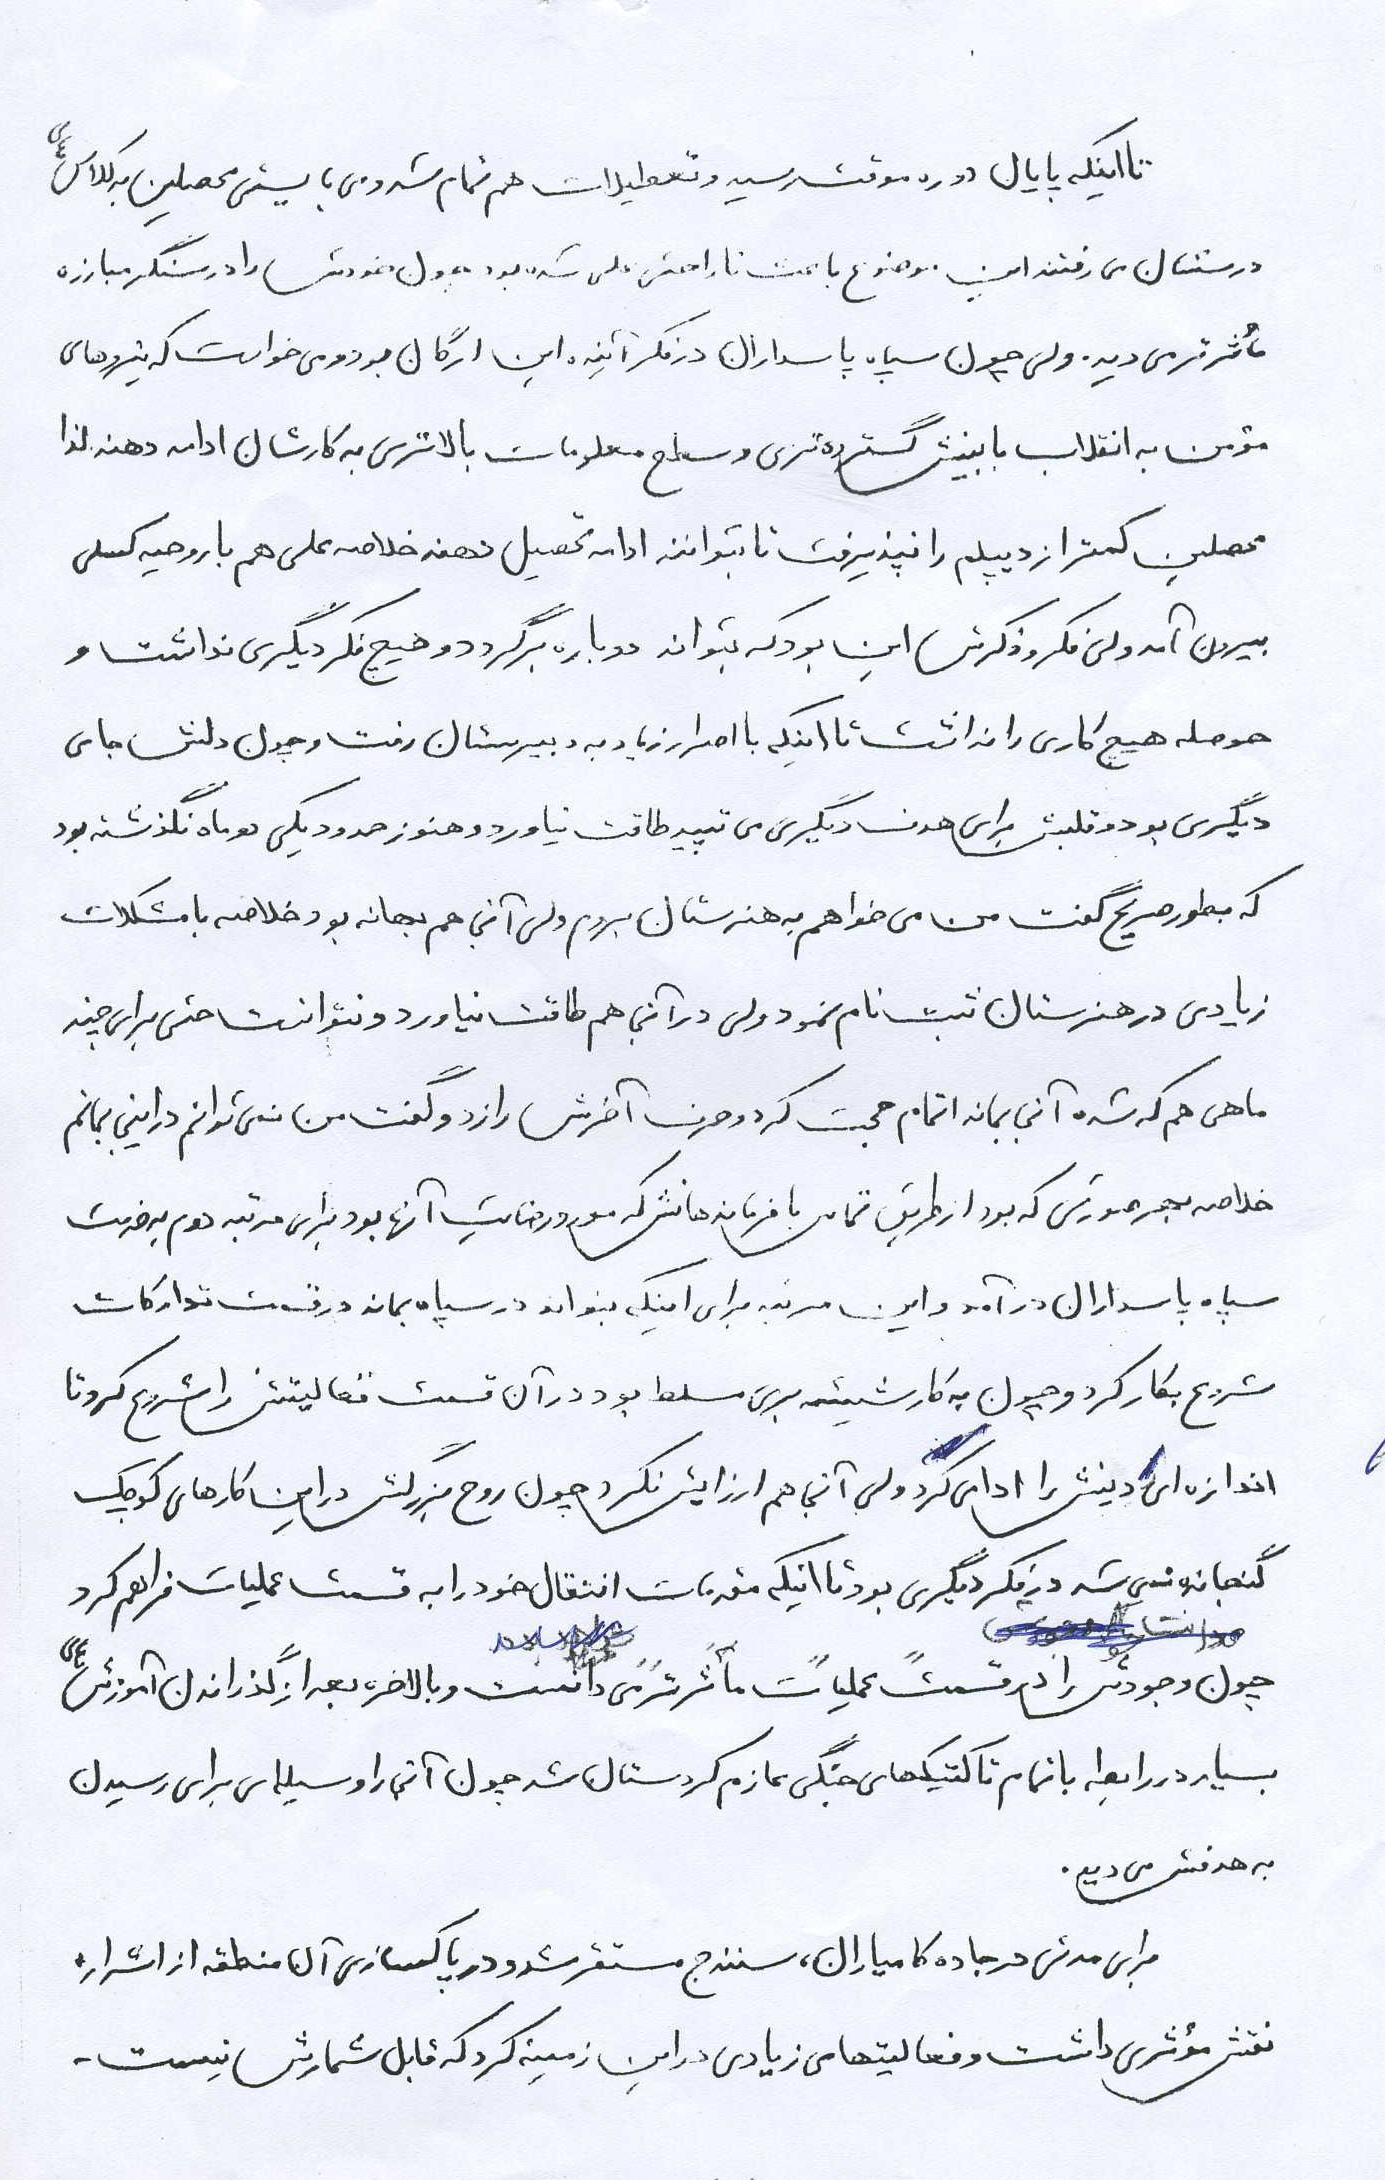 تا اینکه پایان دوره موقتش رسید و تعطیلات هم تمام شد و می بایستی محصلین به کلاس های
درسشان می رفتند این موضوع باعث ناراحتی علی شده بود چون خودش را در سنگر مبارزه
مأثرتر می دید. ولی چون سپاه پاسداران در فکر آینده این ارگان بود و می خواست که نیروهای
مؤمن به انقلاب با بینش گسترده تری و سطح معلومات بالاتری به کارشان ادامه دهند لذا
محصلین کمتر از دیپلم را نپذیرفت تا بتوانند ادامه تحصیل دهند خلاصه علی هم با روحیه کسلی
بیرون آمد ولی فکر و ذکرش این بود که بتواند دوباره برگردد و هیچ فکر دیگری نداشت و
حوصله هیچ کاری را نداشت تا اینکه با اصرار زیاد به دبیرستان رفت و چون دلش جای
دیگری بود و قلبش برای هدف دیگری می تپید طاقت نیاورد و هنوز حدود یکی دو ماه نگذشته بود
که بطور صریح گفت من می خواهم به هنرستان بروم ولی آنجا هم بهانه بود خلاصه با مشکلات
زیادی در هنرستان ثبت نام نمود ولی در آنجا هم طاقت نیاورد و نتوانست حتی برای چند
ماهی هم که شده آنجا بماند اتمام حجت کرد و حرف آخرش را زد و گفت من نمی توانم در اینجا بمانم
خلاصه بهر صورتی که بود از طریق تماس با فرمانده هانش که مورد رضایت آنها بود برای مرتبه دوم به خدمت
سپاه پاسداران درآمد و این مرتبه برای اینکه بتواند در سپاه بماند در قسمت تدارکات
شروع بکار کرد و چون به کار شیشه بری مسلط بود در آن قسمت فعالیتش را شروع کرد و تا
اندازه ای دینش را ادا می کرد ولی آنجا هم ارزایش نکرد چون روح بزرگش در این کارهای کوچک
گنجانده نمی شد در فکر دیگری بود تا اینکه مقدمات انتقال خود را به قسمت عملیات فراهم کرد
چون وجودش را در قسمت عملیات مأثرتر می دانست و بالاخره بعد از گذراندن آموزش های
بسیار در رابطه با تمام تاکتیکهای جنگی عازم کردستان شد چون آنجا را وسیله ای برای رسیدن
به هدفش می دید.
برای مدتی در جاده کامیاران، سنندج مستقر شد و در پاکسازی آن منطقه از اشرار
نقش مؤثری داشت و فعالیتهای زیادی در این زمینه کرد که قابل شمارش نیست -